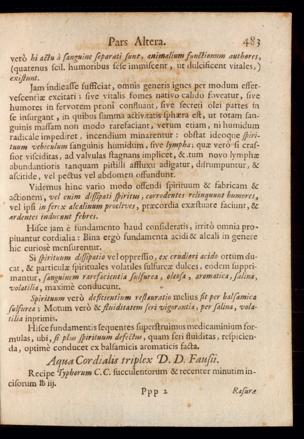 Pars Altera. 483
verò hi actu à sanguine separati sunt, animalium functionum authores,
(quatenus scil. humoribus sese immiscent, ut dulcificent vitales,)
existunt.
Jam indicasse sufficiat, omnis generis ignes per modum effer-
vescentiæ excitati: sive vitalis fomes nativo calido foveatur, sive
humores in fervorem proni confluant, sive secreti olei partes in
se insurgant, in quibus summa activitatis sphæra est, ut totam san-
guinis massam non modo rarefaciant, verum etiam, ni humidum
radicale impediret, incendium minarentur: obstat ideoque spiri-
tuum vehiculum sanguinis humidum, sive lympha; quæ verò si cras-
sior visciditas, ad valvulas stagnans implicet, & tum novo lymphæ
abundantioris tanquam pistilli affluxu adigatur, disrumpuntur, &
ascitide, vel pectus vel abdomen offundunt.
Videmus hinc vario modo offendi spirituum & fabricam &
actionem, vel enim dissipati spiritus, corrodentes relinquunt humores,
vel ipsi in ferox alcalinum proclives, præcordia exæstuare faciunt, &
ardentes inducunt febres.
Hisce jam è fundamento haud consideratis, irritò omnia pro-
pinantur cordialia: Bina ergò fundamenta acidi & alcali in genere
hic curiosè mensurentur.
Si spirituum dissipatio vel oppressio, ex crudiori acido ortum du-
cat, & particulæ spirituales volatiles sulfureæ dulces, eodem suppri-
mantur, sanguinem rarefacientia sulfurea, oleosa, aromatica, salina,
volatilia, maximè conducunt.
Spirituum verò deficientium restauratio melius fit per balsamica
sulfurea: Motum verò & fluiditatem seri vigorantia, per salina, vola-
tilia inprimis.
Hisce fundamentis sequentes superstruimus medicaminium for-
mulas, ubi, si plus spirituum defectus, quam seri fluiditas, respicien-
da, optimè conducet ex balsamicis aromaticis facta.
Aqua Cordialis triplex D. D. Fausii.
Recipe Typhorum C. C. succulentorum & recenter minutim in-
cisorum ℔ iij.
Ppp 2 Rasuræ